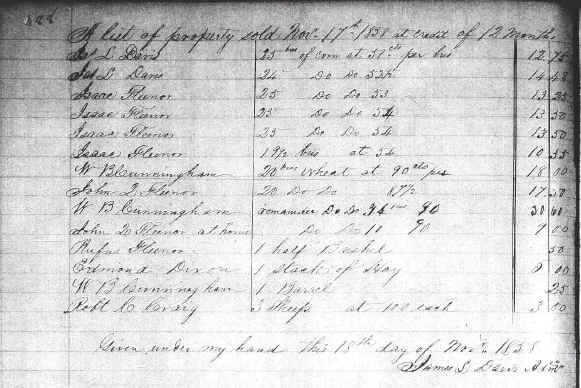 A list of property sold Nov. 17th 1838 at credit of 12 Months
Jas L Davis 25 bus of corn at 51 cts per bus 12 75
Jas L Davis 24 Do Do 53½ 14 48
Isaac Fleenor 25 Do Do 53 13 25
Isaac Fleenor 25 Do Do 54 13 50
Isaac Fleenor 25 Do Do 54 13 50
Isaac Fleenor 19½ bus at 54 10 55
W B Cunningham 20 bus Wheat at 90 cts per 18 00
John Q Fleenor 20 Do Do 87½ 17 50
W B Cunningham remainder Do Do 90 30 60
John Q Fleenor at home Do Do 10 90 9 00
Rufus Fleenor 1 half Bushel 50
Edmond Dixon 1 stack of Hay 9 00
W B Cunningham 1 Barrel 25
Robt C Craig 3 Sheep at 100 each 3 00
Given under my hand This 18th day of Novr. 1838
James L Davis Admr